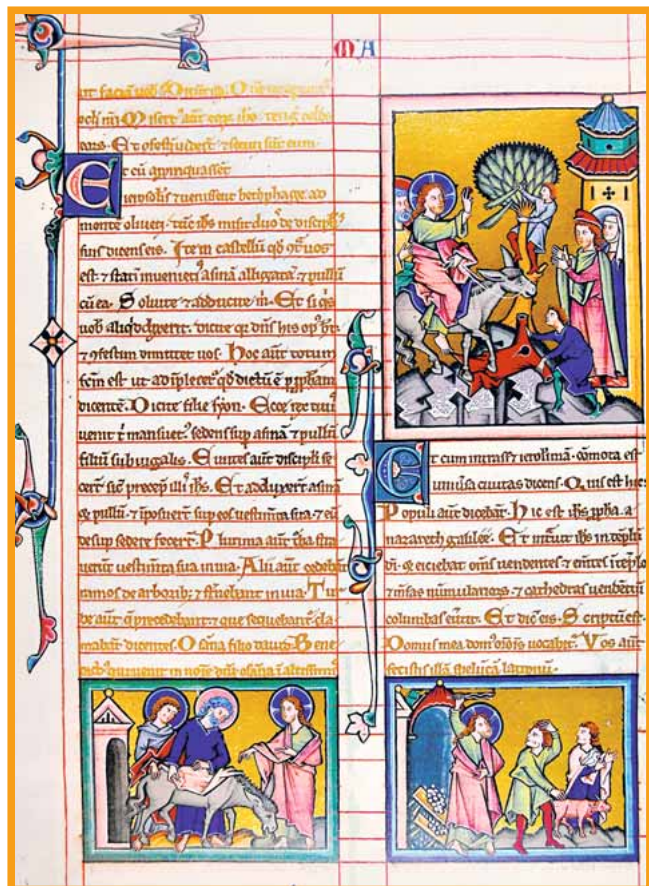 M A
ut faciā uob̄
ocl̓i m̄i Miſert̓ aut̄ eoꝝ ihc̄ tetiḡ
eoꝝ Et ꝯfeſti uidert̄ ⁊ ſecuti ſūt eum
Et cū apꝓinquaſſet
ieroſolis ⁊ ueniſſent bethphage ad
monte oliueti tūc ihs̄ miſit duo de diſcipl̓
ſuis dicenſ eis Ite in caſtellū qd̓ ꝯt̓ uos
eſt ⁊ ſtatī inuenieti aſinā alligatā ⁊ pullū
cū ea Soluite ⁊ adducite m̄ Et ſi q̓s
uob̄ aliq̓d dixerit dicite qꝛ dn̄s his op̓ hꝫ
⁊ ꝯfeſtim dimittet uos Hoc aut̄ totum
fcm̄ eſt ut adīpleret̓ qd̓ dictū ē ꝑ ꝓph̄am
dicentē Dicite filie ſyon Ecce rex tuus
uenit t̓ manſuet̓ ſedens ſup aſinā ⁊ pullū
filiū ſubiugalis Euntes aut̄ diſcipl̓i fe
cert̄ ſic̄ precep̓ illi̓ ihs̄ Et adduxert̄ aſinā
⁊ pullū ⁊ īpoſuert̄ ſup eos ueſtim̄ta ſua ⁊ eū
deſup ſedere fecert̄ Plurima aut̄ t̓ba ſtra
uerūt ueſtim̄ta ſua in uia Alii aut̄ cedebāt
ramos de arborib; ⁊ ſternebant in uia Tur
be aut̄ q̓ precedebant ⁊ que ſequebant̓ cla
mabāt dicentes Oſāna filio dauid Bene
dict̓ qui uenit in noīe dn̄i oſāna ī altiſſimis
Et cum intraſſꝫ ieroſlimā cōmota eſt
uniuſa ciuitas dicens Quis eſt hic
Populi aut̄ dicebāt Hic eſt ihs̄ ꝓph̄a a
nazareth galilee Et intuit ihs̄ in tēplū
dī ⁊ eiciebat om̄s uendentes ⁊ emētes ī tēplo
⁊ mēſas numulariorꝝ ⁊ cathedras uendētiū
columbas eūtit Et dic̄ eis Scriptū eſt
Domus mea dom̓ or̄ōis uocabit̓ Vos aut̄
feciſtis illā ſpelūcā latronū